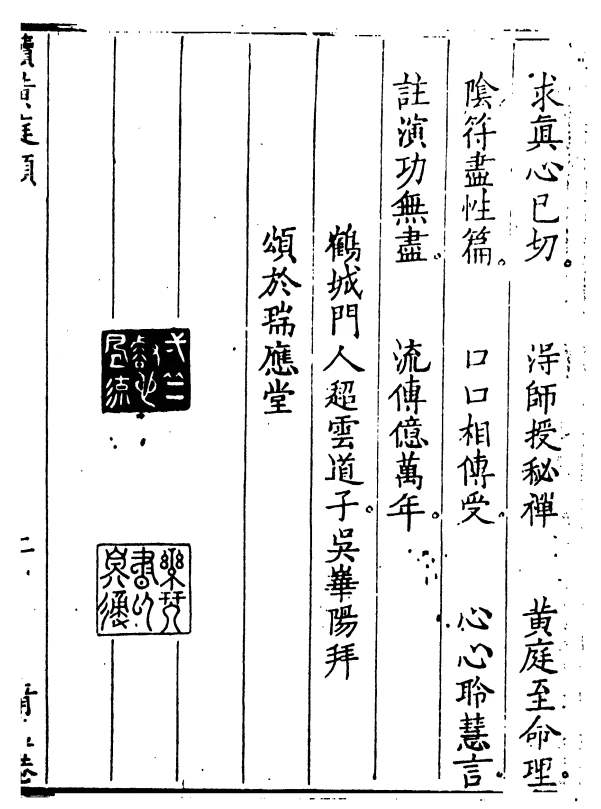 求眞心已切。 淂師授秘禪 黄庭至命理。
陰符盡性篇。 口口相傳受。 心心聆慧言。
註演功無盡。 流傳億萬年。
鶴城門人超雲道子。吳崋陽拜
頌於瑞應堂
黄庭
二